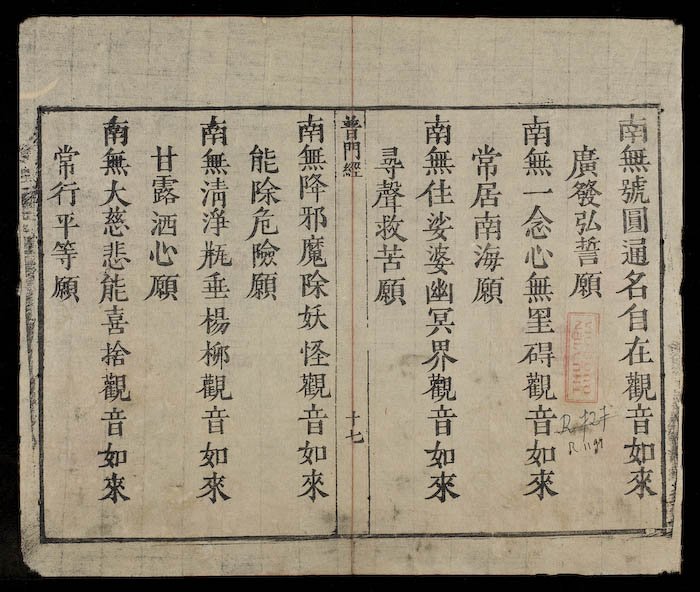 南無號圓通名自在觀音如來
廣發弘誓願
南無一念心無罣碍觀音如來
常居南海願
南無住娑婆幽冥界觀音如來
尋聲救苦願
普門經
十七
南無降邪魔除妖怪觀音如來
能除危險願
南無清淨瓶垂楊柳觀音如來
甘露洒心願
南無大慈悲能喜捨觀音如來
常行平等願